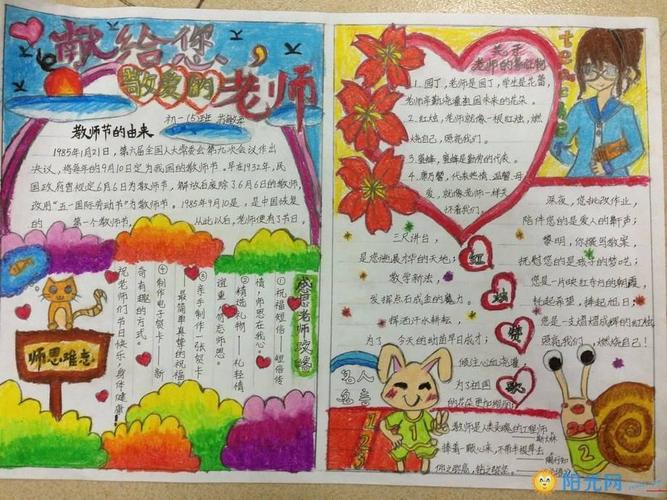 献给您,
敬爱的老师
初一(5)班
教师节的由来
1985年1月21日,第六届全国人大常委会第九次会议作出
决议,将每年的9月10日定为我国的教师节。早在1932年,民
国政府曾规定6月6日为教师节,解放后废除了6月6日的教师节,
改用"五一国际劳动节"为教师节。1985年9月10日,是中国恢复
的第一个教师节,从此以后,老师便有了节日
感恩老师
①祝福短信——短信传
情,师恩在我心。
②精选礼物——礼轻情
谊重,勿忘师恩。
③亲手制作一张贺卡——
最简单真挚的祝福
④制作电子贺卡——新
奇有趣的方式。
祝老师们节日快乐,身体健康!
师恩难忘
关于
老师的
1.园丁,老师是园丁,学生是花蕾,
老师辛勤浇灌祖国未来的花朵。
2.红烛,老师就像一根红烛,燃
烧自己,照亮我们。
3.蜜蜂,蜜蜂是勤劳的代表。
4.康乃馨,代表热情、温馨、母
爱,就像老师一样关
怀着我们。
teacher
三尺讲台,
是您施展才华的天地;
教学新法,
发挥点石成金的魔力。
挥洒汗水耕耘,
为了今天的幼苗早日成才;
倾注心血浇灌,
为了祖国
的花朵更加
红
烛
赞
歌
深夜,您批改作业,
陪伴您的是爱人的鼾声;
黎明,你撰写教案,
抚慰您的是孩子的梦呓;
您是一片映红春晖的朝霞,
托起希望,捧起旭日;
你是一支熠熠成辉的红烛,
照亮我们,燃烧自己!
名人
名言
1
2
3
1
教师是人类灵魂的工程师。
——斯大林
捧着一颗心来,不带半根草去
——陶行知
阳光网